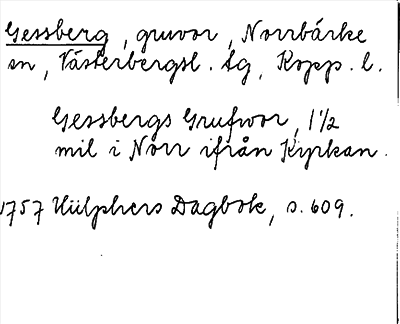 Gessberg, gruvor, Norrbärke
sn, Västerbergsl. tg, Kopp. l.
Gessbergs Grufwor, 1 1/2
mil i Norr ifrån Kyrkan.
1757 Hülphers Dagbok, s. 609.